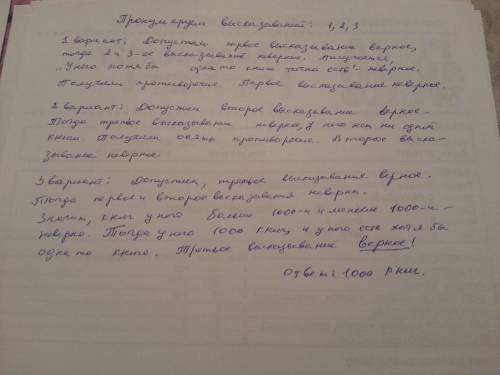 Пронумеруем высказывания: 1, 2, 3
1 вариант. Допустим первое высказывание верное,
тогда 2 и 3-ее высказывания неверно. Получается,
„У него хотя бы одна то книга точно есть" - неверное.
Получили противоречие. Первое высказывание неверное.
2 вариант: Допустим второе высказывание верное -
Тогда третье высказывание неверно, у него нет ни одной
книги Получили опять противоречие. Второе выска-
зывание неверное.
3 вариант: Допустим, третье высказывание верное.
Тогда первое и второе высказывания неверны.
Значит, книг у него больше 1000-и и меньше 1000-и -
неверно. Тогда у него 1000 книг и у него есть хотя бы
одна то книга. Третье высказывание верное!
Ответ: 1000 книг.